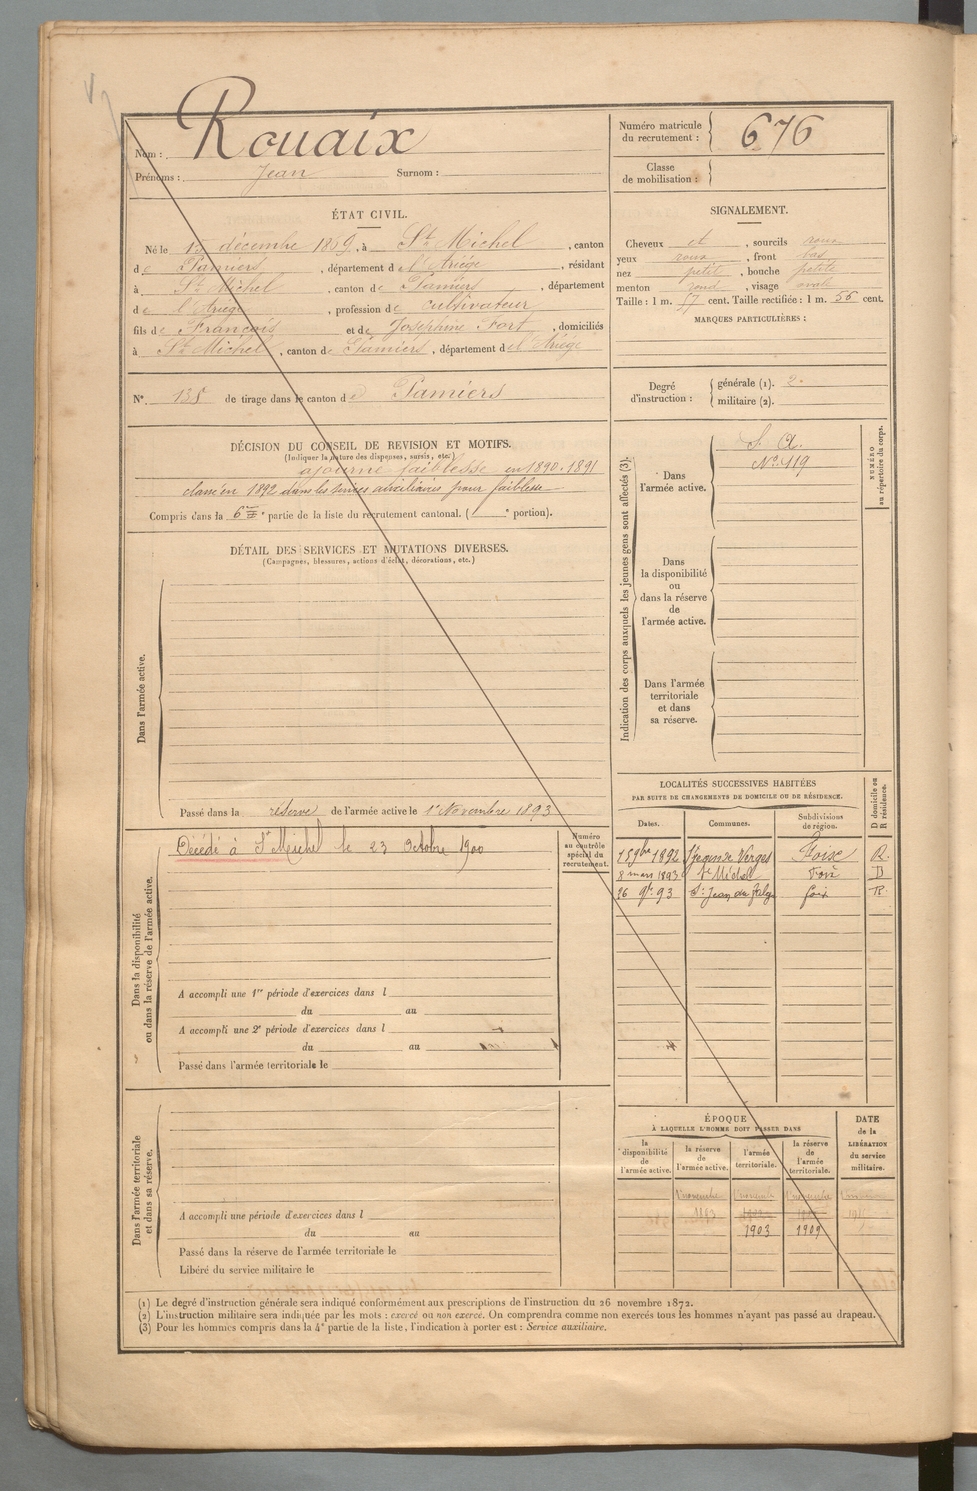 Nom : Rouaix
Prénoms : Jean Surnom :
Numéro matricule du recrutement : 676
Classe de mobilisation :
ÉTAT CIVIL.
Né le 15 décembre 1869, à St Michel, canton
de Pamiers, département de l'Ariége, résidant
à St Michel, canton de Pamiers, département
de l'Ariége, profession de cultivateur
fils de François et de Josephine Fort, domiciliés
à St Michel, canton de Pamiers, département de l'Ariége
N° 135 de tirage dans le canton de Pamiers
SIGNALEMENT.
Cheveux et, sourcils roux
yeux roux, front bas
nez petit, bouche petite
menton rond, visage ovale
Taille : 1 m. 57 cent. Taille rectifiée : 1 m. 56 cent.
MARQUES PARTICULIÈRES :
Degré d'instruction : générale (1). 2.
militaire (2).
DÉCISION DU CONSEIL DE REVISION ET MOTIFS.
(Indiquer la nature des dispenses, sursis, etc.)
ajourné faiblesse en 1890. 1891
classé en 1892 dans les services auxiliaires pour faiblesse
Compris dans la 6e partie de la liste du recrutement cantonal. ( e portion).
DÉTAIL DES SERVICES ET MUTATIONS DIVERSES.
(Campagnes, blessures, actions d'éclat, décorations, etc.)
Dans l'armée active.
Passé dans la réserve de l'armée active le 1er Novembre 1893
Indication des corps auxquels les jeunes gens sont affectés (3).
NUMÉRO au répertoire du corps.
Dans l'armée active.
S. A.
No 119
Dans la disponibilité ou dans la réserve de l'armée active.
Dans l'armée territoriale et dans sa réserve.
Dans la disponibilité ou dans la réserve de l'armée active.
Numéro au contrôle spécial du recrutement.
Décédé à St Michel le 23 Octobre 1900
A accompli une 1re période d'exercices dans l
du au
A accompli une 2e période d'exercices dans l
du au
Passé dans l'armée territoriale le
LOCALITÉS SUCCESSIVES HABITÉES
PAR SUITE DE CHANGEMENTS DE DOMICILE OU DE RÉSIDENCE.
D domicile ou R résidence.
Dates. Communes. Subdivisions de région.
15 9bre 1892 St Jean de Verges Foix R.
8 mars 1893 St Michel Foix D
St Jean du Falga foix R
Dans l'armée territoriale et dans sa réserve.
A accompli une période d'exercices dans l
du au
Passé dans la réserve de l'armée territoriale le
Libéré du service militaire le
ÉPOQUE
À LAQUELLE L'HOMME DOIT PASSER DANS
la disponibilité de l'armée active.
la réserve de l'armée active.
l'armée territoriale.
la réserve de l'armée territoriale.
DATE de la LIBÉRATION du service militaire.
1er novembre 1er novembre 1er novembre
1893
1903 1909
(1) Le degré d'instruction générale sera indiqué conformément aux prescriptions de l'instruction du 26 novembre 1872.
(2) L'instruction militaire sera indiquée par les mots : exercé ou non exercé. On comprendra comme non exercés tous les hommes n'ayant pas passé au drapeau.
(3) Pour les hommes compris dans la 4e partie de la liste, l'indication à porter est : Service auxiliaire.